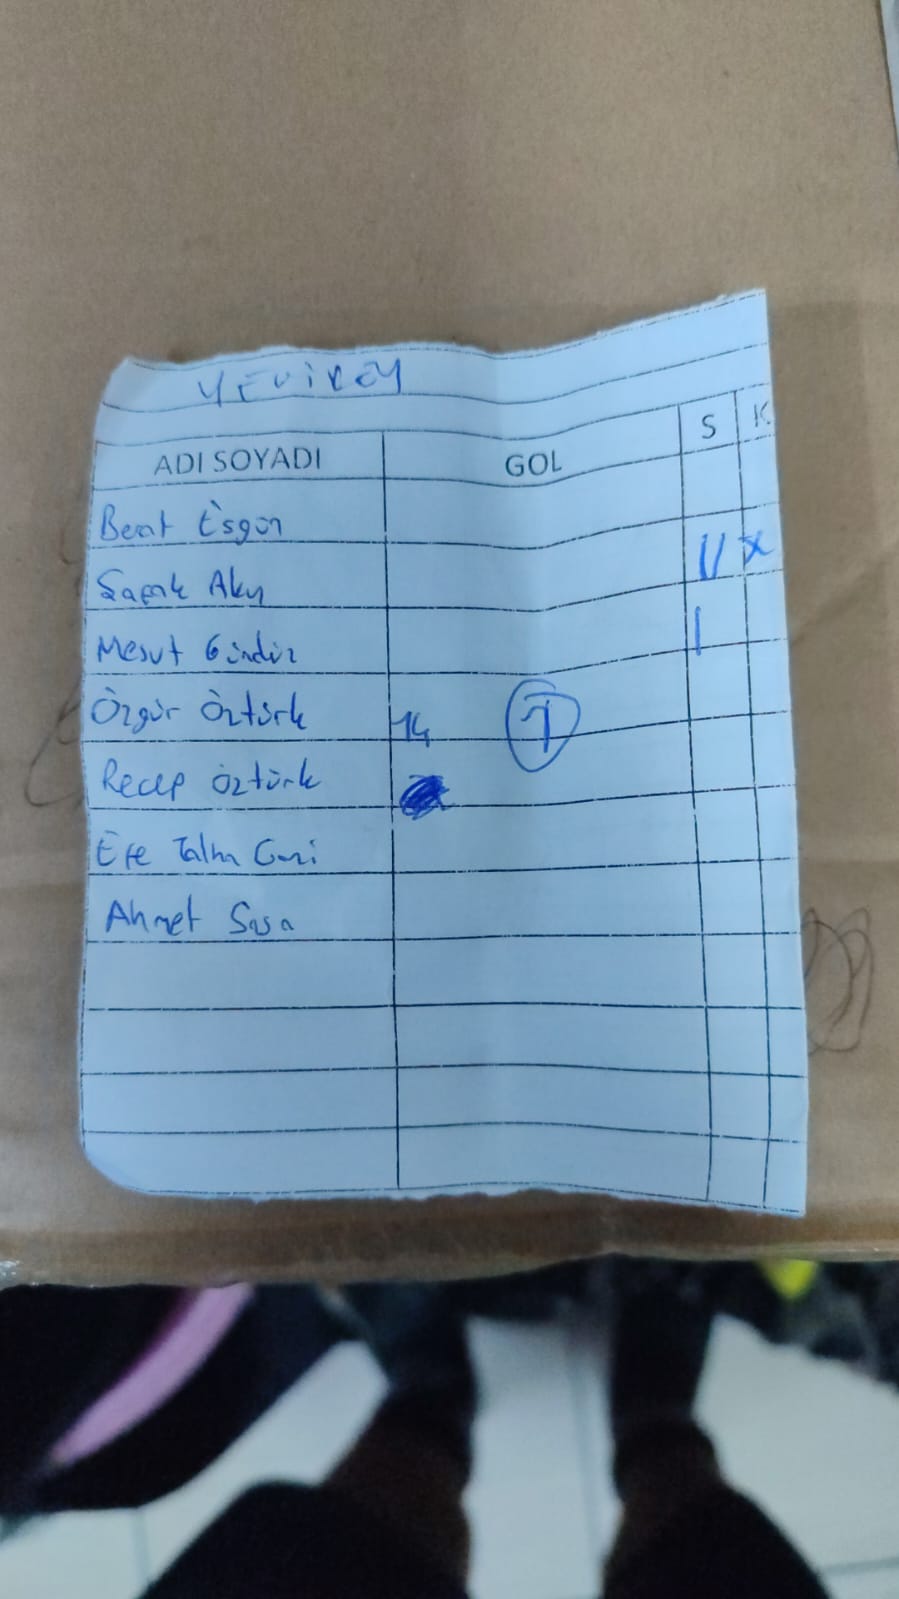 YEVİKEY
ADI SOYADI GOL S K
Berat Esgün
Şafak Aku || x
Mesut Gündüz |
Özgür Öztürk 14 1
Recep Öztürk
Efe Talha
Ahmet Sasa